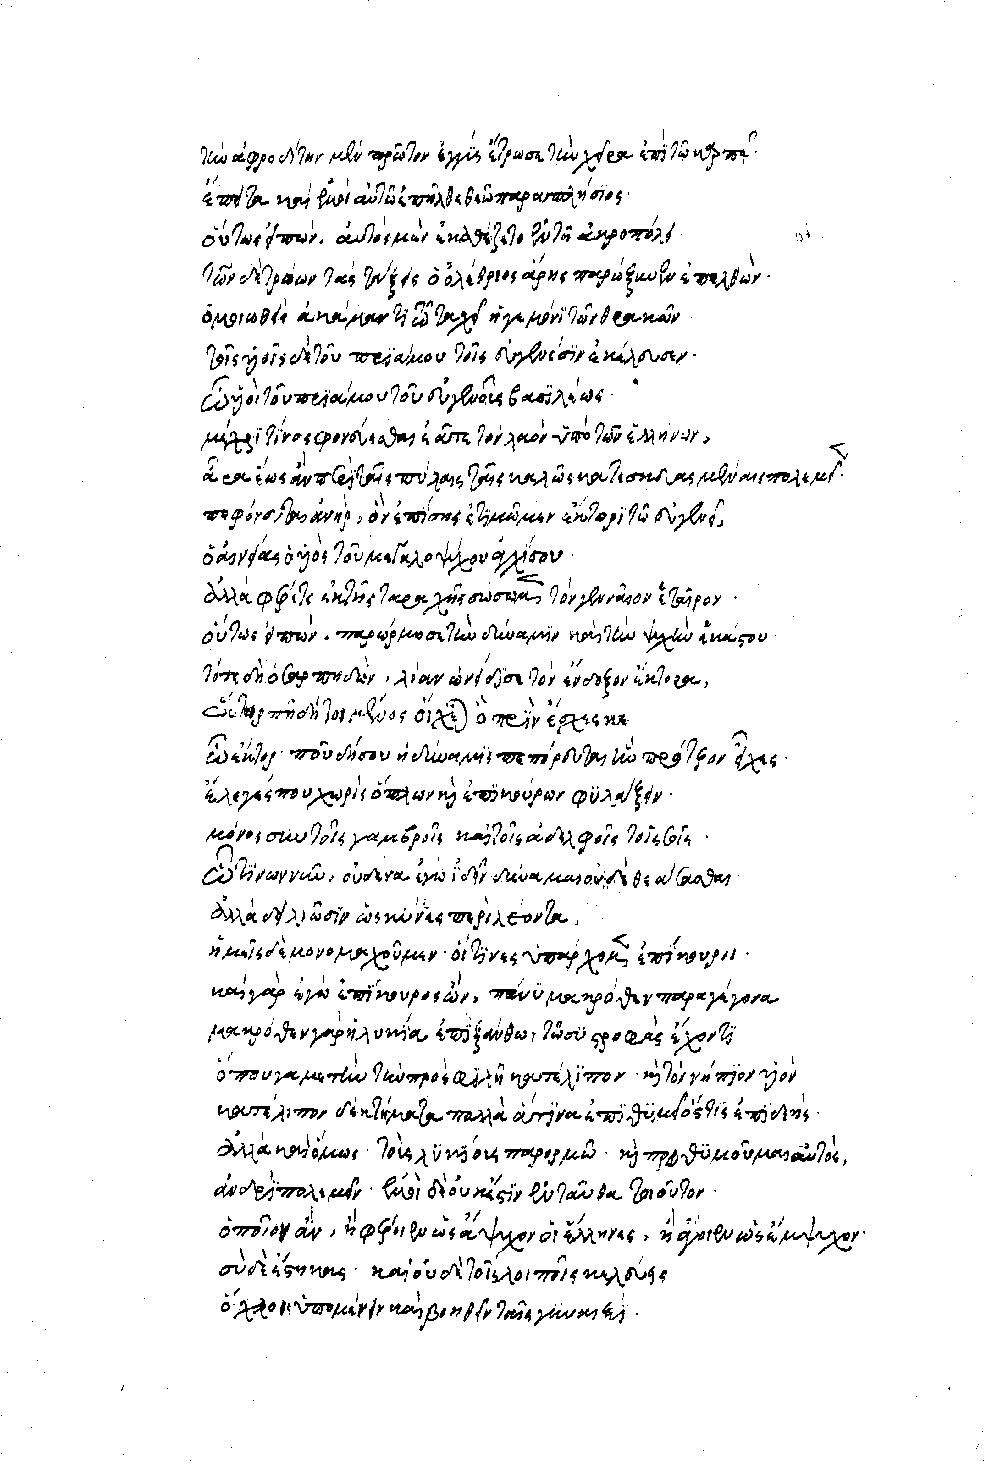 τὴν ἀφροδίτην μὲν πρῶτον ἐγγὺς ἔτρωσε τὴν χεῖρα ἐπὶ τῶ καρπῶ·
ἔπειτα καὶ ἐμοὶ αὐτῶ ἐπῆλθε θεῶ παραπλήσιος·
οὕτως εἰπὼν, αὐτὸς μὲν ἐκαθέζετο ἐν τῆ ἀκροπόλει·
τῶν δὲ τρώων τὰς τάξεις ὁ ὀλέθριος ἄρης παρώξυνεν ἐπελθὼν·
ὁμοιωθεὶς ἀκάμαντι τῶ ταχεῖ ἡγεμόνι τῶν θρακῶν·
τοῖς υἱοῖς δὲ τοῦ πριάμου τοῖς εὐγενέσιν ἐκέλευσεν·
ὦ υἱοὶ τοῦ πριάμου τοῦ εὐγενοῦς βασιλέως·
μέχρι τίνος φονεύεσθαι ἐᾶτε τὸν λαὸν ὑπὸ τῶν ἑλλήνων,
ἆρα ἕως ἂν περὶ ταῖς πύλαις ταῖς καλῶς κατεσκευασμέναις πολεμῶσι·
πεφόνευται ἀνὴρ, ὃν ἐπίσης ἐτιμῶμεν ἕκτορι τῶ εὐγενεῖ,
ὁ αἰνείας ὁ υἱὸς τοῦ μεγαλοψύχου ἀγχίσου·
ἀλλὰ φέρετε ἐκ τῆς ταραχῆς σώσωμεν τὸν γενναῖον ἑταῖρον·
οὕτως εἰπὼν, παρώρμησε τὴν δύναμιν καὶ τὴν ψυχὴν ἑκάστου·
τότε δὴ ὁ σαρπηδὼν, λίαν ὠνείδισε τὸν ἔνδοξον ἕκτορα,
ἕκτορ πῆ δή τοι μένος οἴχεται ὃ πρὶν ἔχεσκε
ὦ ἕκτορ ποῦ δή σου ἡ δύναμις πεπόρευται ἣν πρότερον εἶχες·
ἔλεγές που χωρὶς ὅπλων καὶ ἐπικούρων φυλάξειν·
μόνος σὺν τοῖς γαμβροῖς καὶ τοῖς ἀδελφοῖς τοῖς σοῖς·
ὧν τινων νῦν, οὐδένα ἐγὼ ἰδεῖν δύναμαι οὐδὲ θεάσασθαι
ἀλλὰ δειλιῶσιν ὡς κύνες περὶ λέοντα,
ἡμεῖς δὲ μονομαχοῦμεν· οἵτινες ὑπάρχομεν ἐπίκουροι·
καὶ γὰρ ἐγὼ ἐπίκουρος ὢν, πάνυ μακρόθεν παραγέγονα
μακρόθεν γὰρ ἡ λυκία ἐπὶ ξάνθω, τῶ συστροφὰς ἔχοντι
ὅπου γαμετὴν τὴν προσφιλῆ κατέλιπον· καὶ τὸν νήπιον υἱὸν
κατέλιπον δὲ κτήματα πολλὰ ἅτινα ἐπιθυμεῖ ὅστις ἐπιδεὴς·
ἀλλὰ καὶ ὅμως τοὺς λυκίους παρορμῶ· καὶ προθυμοῦμαι αὐτὸς,
ἀνδρὶ πολεμεῖν· ἐμοὶ δὲ οὐκ ἔστιν ἐνταῦθα τοιοῦτον·
ὁποῖον ἂν, ἢ φέροιεν ὡς ἄψυχον οἱ ἕλληνες, ἢ ἄγοιεν ὡς ἔμψυχον·
σὺ δὲ ἕστηκας· καὶ οὐδὲ τοῖς λοιποῖς κελεύεις
ὄχλοις ὑπομένειν καὶ βοηθεῖν ταῖς γυναιξὶ·